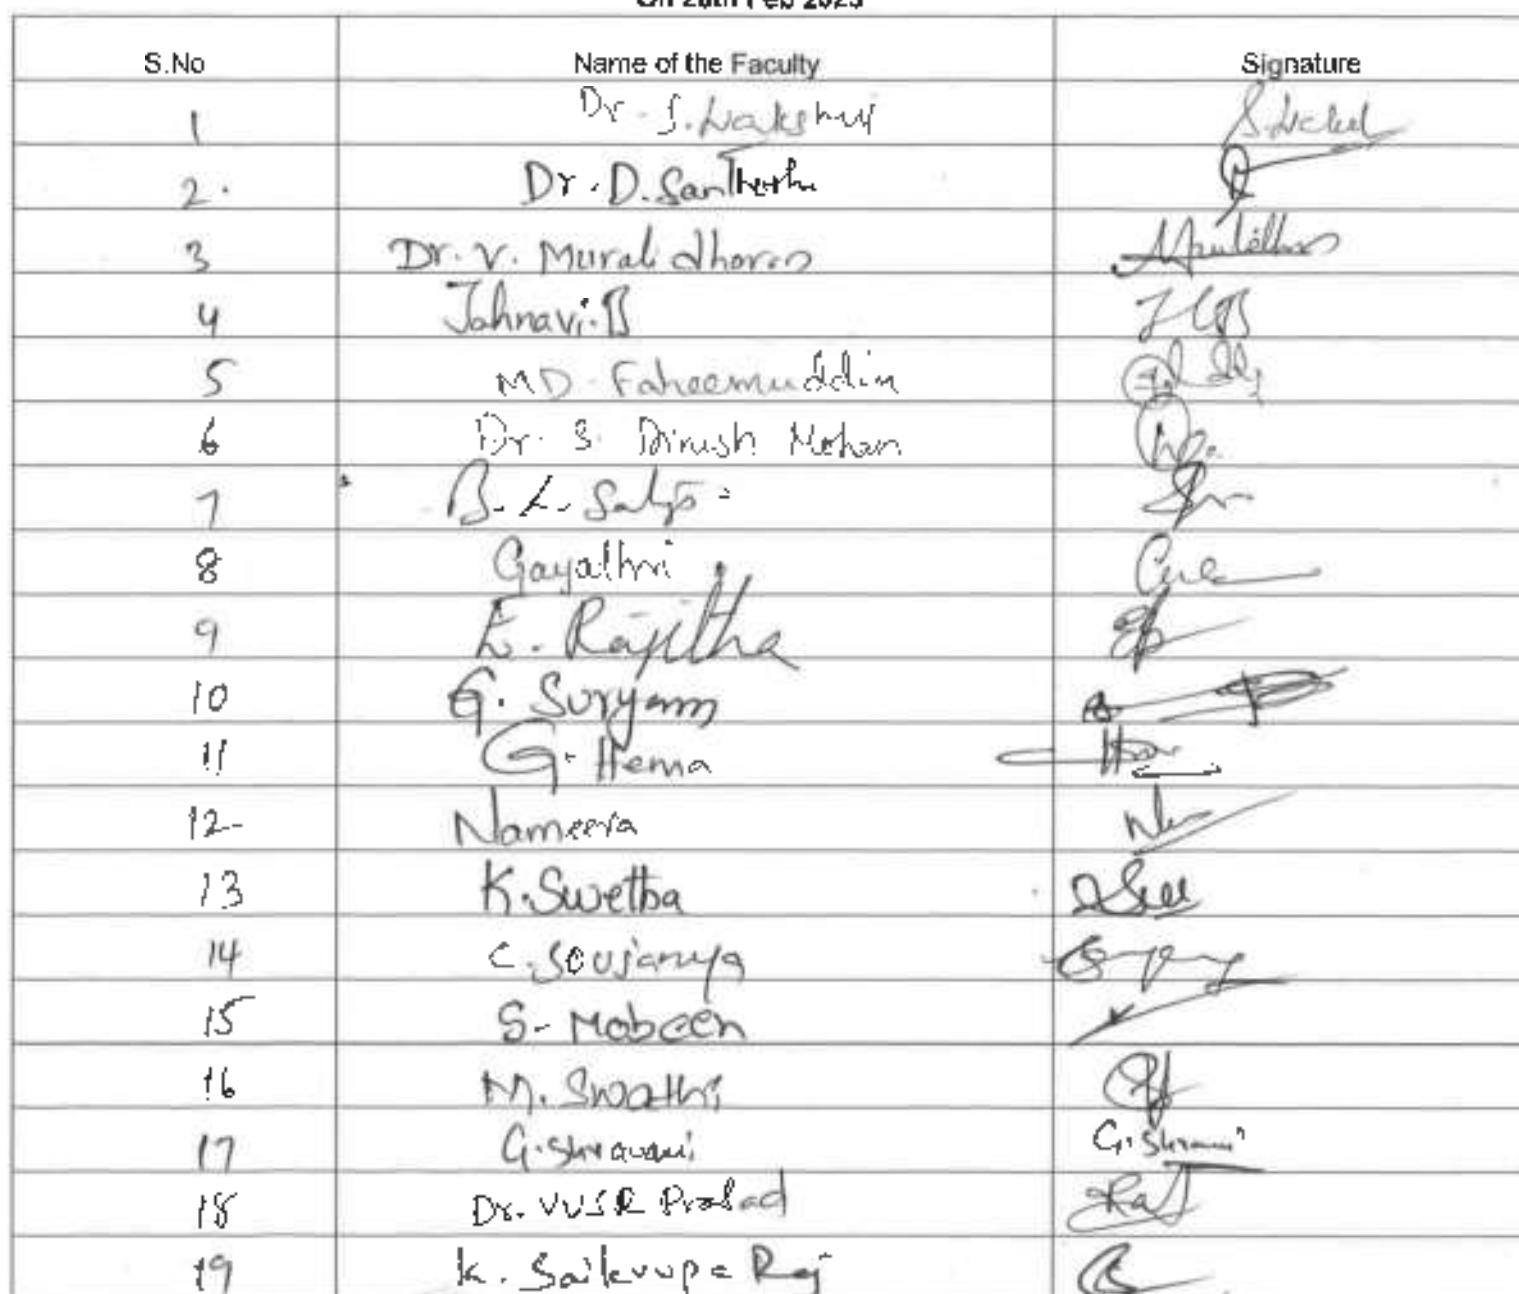 On 28th Feb 2023
S.No Name of the Faculty Signature
1 Dr. S. Lakshmi S. Laksh
2. Dr. D. Santhoshi
3 Dr. V. Muralidharan
4 Jahnavi. B JCB
5 MD. Faheemuddin
6 Dr. S. Dinesh Mohan
7 B. L. Satya
8 Gayathri
9 E. Rajitha
10 G. Suryam
11 G. Hema
12 Nameera
13 K. Swetha
14 C. Soujanya
15 S. Mobeen
16 M. Swathi
17 G. Shravani G. Shravani
18 Dr. VVSR Prasad
19 K. Saikrupa Raj